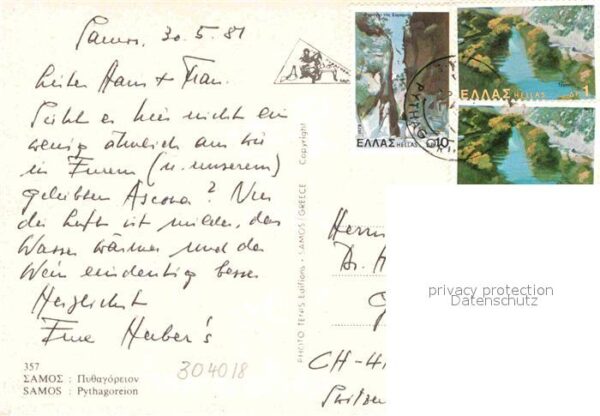 Samos, 30.5.81
Lieber Hans + Frau.
Sieht es hier nicht ein
wenig ähnlich aus wie
in Eurem (u. unserem)
geliebten Ascona? Nur
die Luft ist milder, das
Wasser wärmer und der
Wein eindeutig besser
Herzlichst
Eure Huber's
357
ΣΑΜΟΣ : Πυθαγόρειον
SAMOS : Pythagoreion
304018
PHOTO TERPS Editions - SAMOS / GREECE Copyright
1979
ΕΛΛΑΣ HELLAS ΔΡ 10
ΕΛΛΑΣ HELLAS ΔΡ 1
Herrn
Dr. H
CH-41
Switzer
privacy protection
Datenschutz